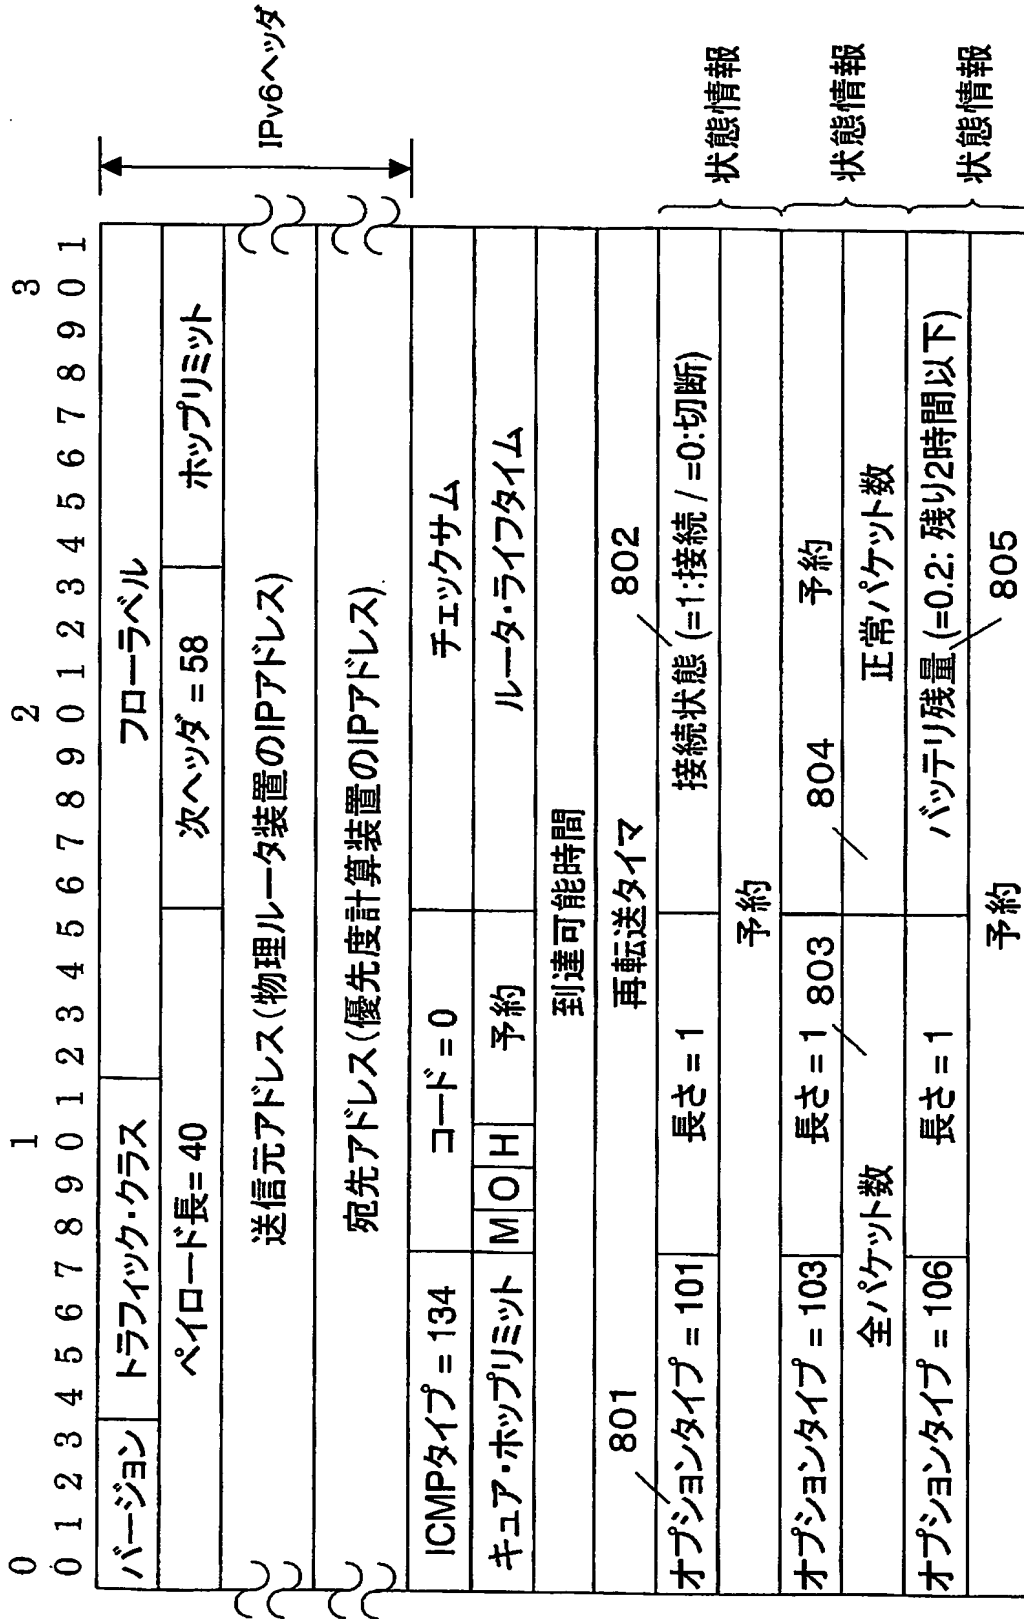 0 1 2 3
0 1 2 3 4 5 6 7 8 9 0 1 2 3 4 5 6 7 8 9 0 1 2 3 4 5 6 7 8 9 0 1
バージョン トラフィック・クラス フローラベル
ペイロード長=40 次ヘッダ=58 ホップリミット
送信元アドレス(物理ルータ装置のIPアドレス)
宛先アドレス(優先度計算装置のIPアドレス)
IPv6ヘッダ
ICMPタイプ=134 コード=0 チェックサム
キュア・ホップリミット M O H 予約 ルータ・ライフタイム
到達可能時間
再転送タイマ
801 802
オプションタイプ=101 長さ=1 接続状態(=1:接続/=0:切断)
予約
状態情報
オプションタイプ=103 長さ=1 803 804 予約
全パケット数 正常パケット数
状態情報
オプションタイプ=106 長さ=1 バッテリ残量(=0.2:残り2時間以下)
予約 805
状態情報